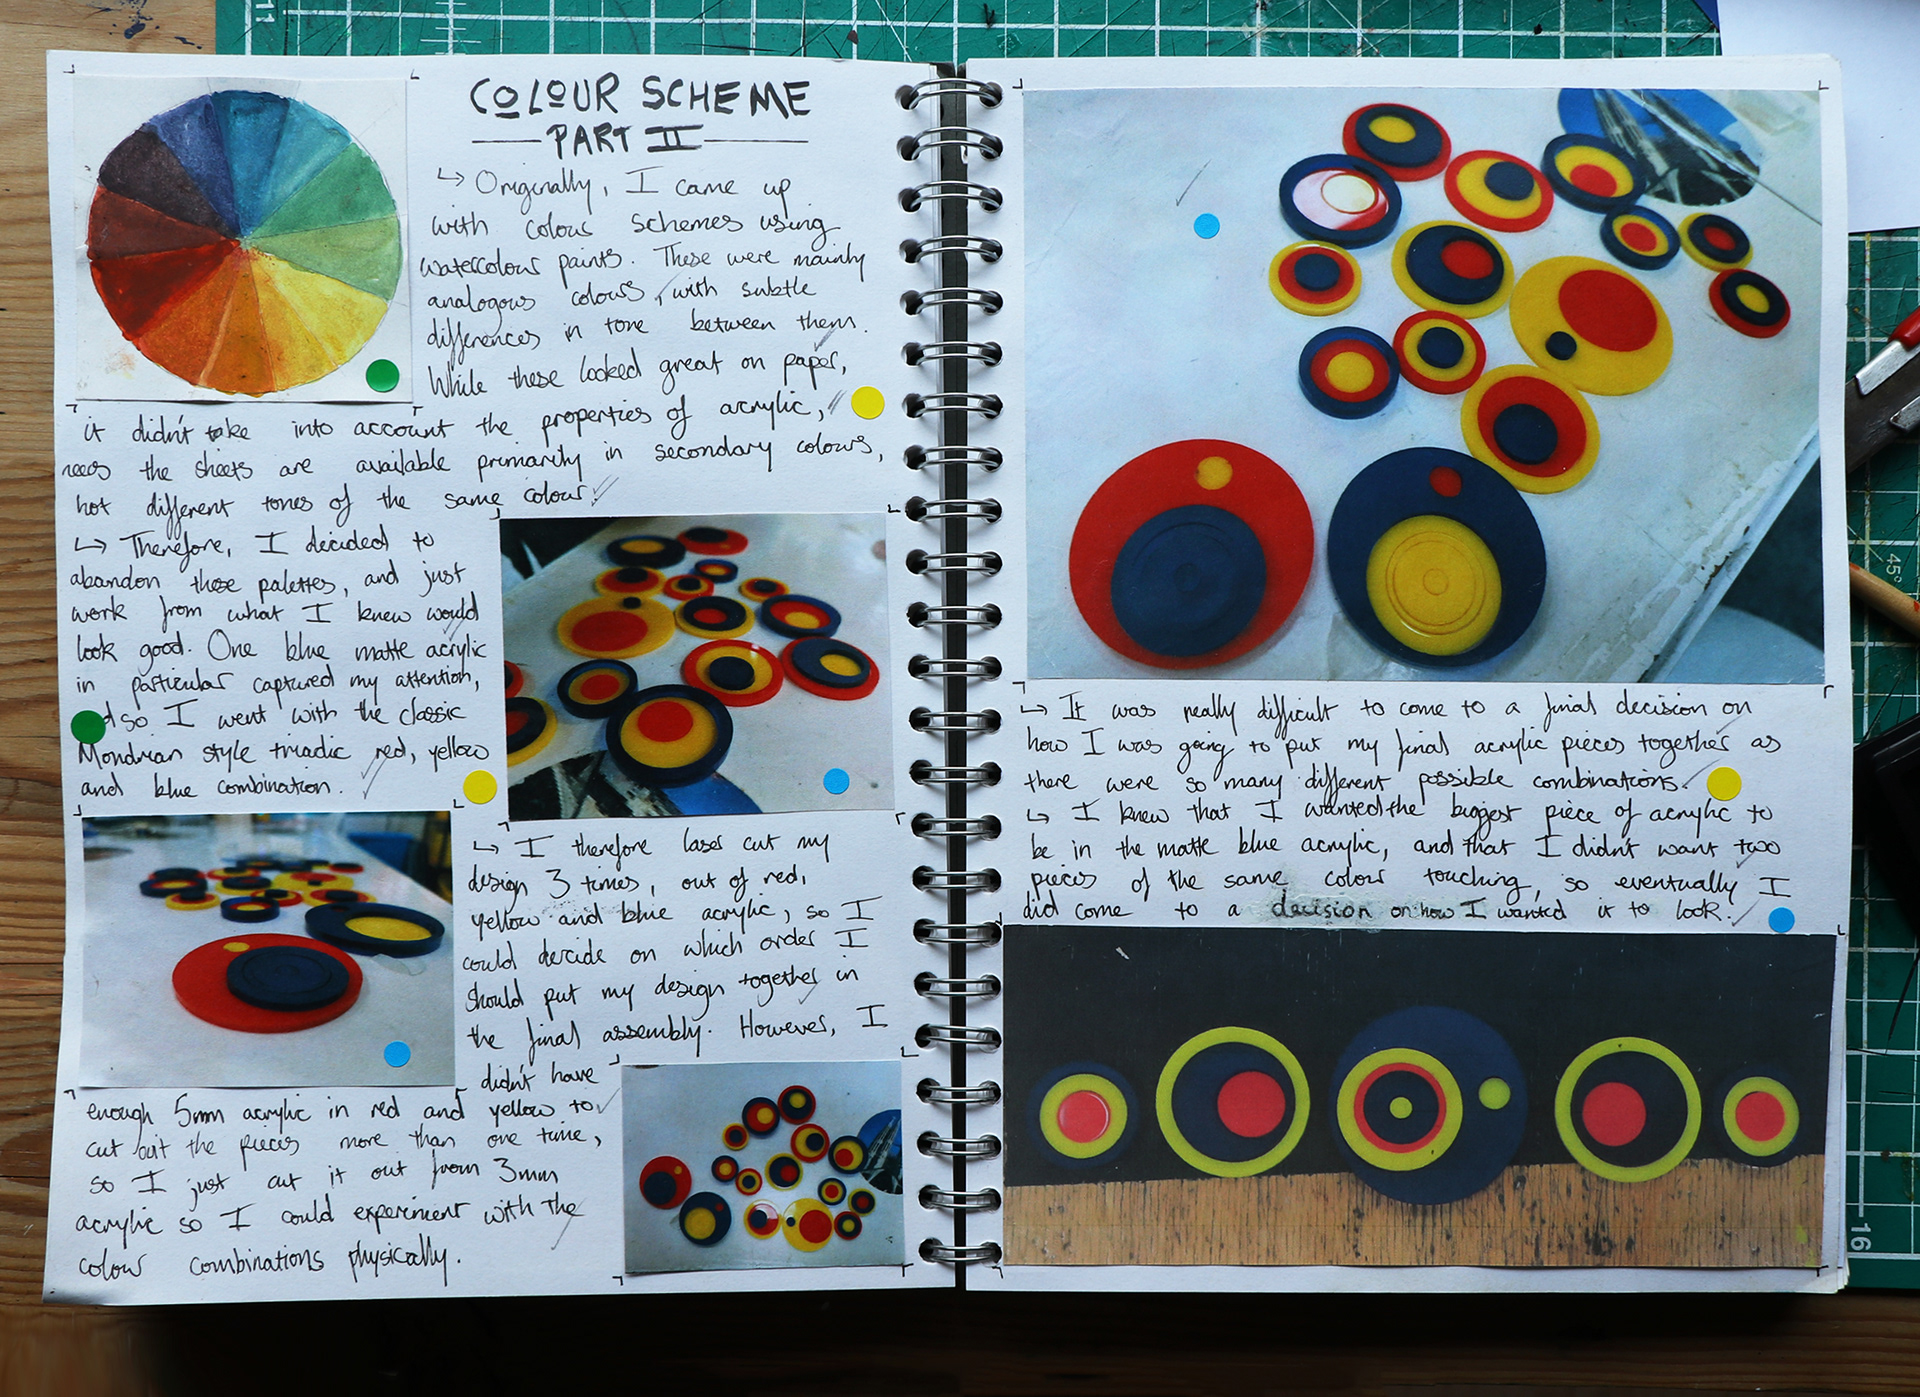 COLOUR SCHEME
PART II
↳ Originally, I came up
with colour schemes using
watercolour paints. These were mainly
analogous colours, with subtle
differences in tone between them.
While these looked great on paper,
it didn't take into account the properties of acrylic,
the sheets are available primarily in secondary colours,
not different tones of the same colour.
↳ Therefore, I decided to
abandon these palettes, and just
work from what I knew would
look good. One blue matte acrylic
in particular captured my attention,
so I went with the classic
Mondrian style triadic red, yellow
and blue combination.
↳ I therefore laser cut my
design 3 times, out of red,
yellow and blue acrylic, so I
could decide on which order I
should put my design together in
the final assembly. However, I
didn't have
enough 5mm acrylic in red and yellow to
cut out the pieces more than one time,
so I just cut it out from 3mm
acrylic so I could experiment with the
colour combinations physically.
↳ It was really difficult to come to a final decision on
how I was going to put my final acrylic pieces together as
there were so many different possible combinations.
↳ I knew that I wanted the biggest piece of acrylic to
be in the matte blue acrylic, and that I didn't want two
pieces of the same colour touching, so eventually I
did come to a decision on how I wanted it to look.
11
45°
16